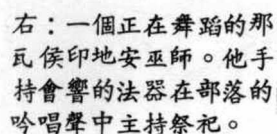 右：一個正在舞蹈的那
瓦侯印地安巫師。他手
持會響的法器在部落的
吟唱聲中主持祭祀。